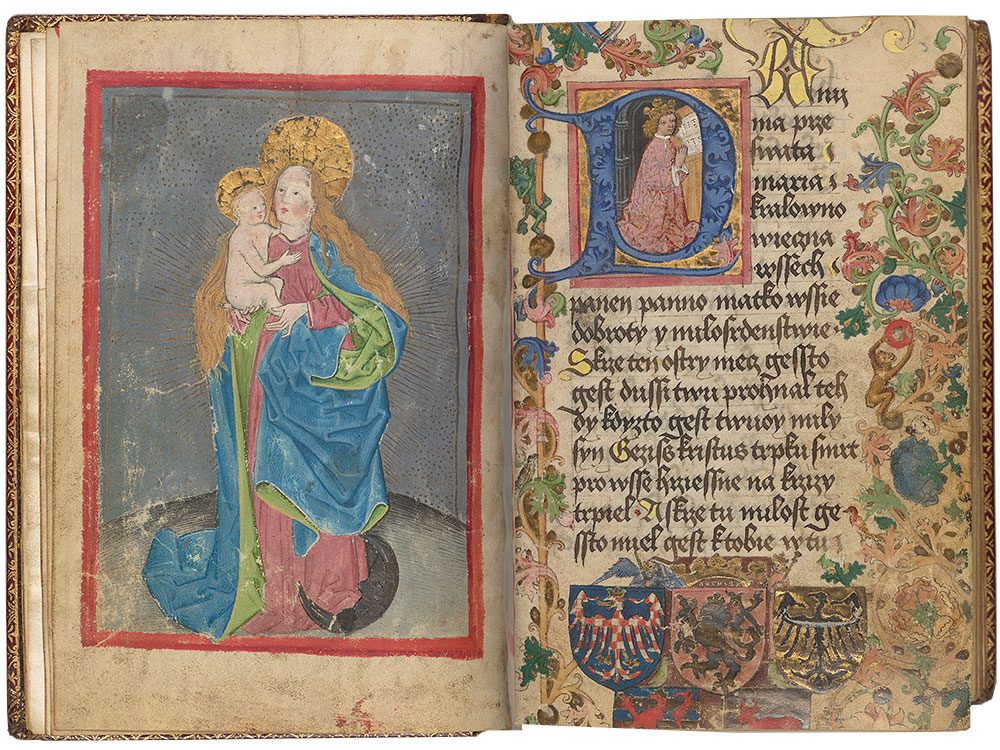 DAny
ma prze
swata
maria
kralowno
wieczna
wssech
panen panno matko wssie
dobroty y milosrdenstwie ·
Skrze ten ostry mecz gessto
gest dussi twu prohnal teh
dy kdyzto gest twuoy mily
syn Geziss kristus trpku smrt
pro wsse hrziessne na krzizy
trpiel · A skrze tu milost ge
ssto miel gest k tobie w tu